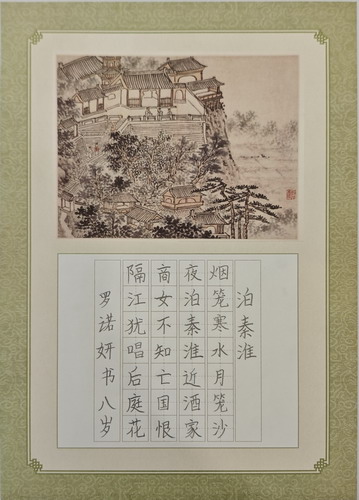 泊秦淮
烟笼寒水月笼沙
夜泊秦淮近酒家
商女不知亡国恨
隔江犹唱后庭花
罗诺妍书八岁